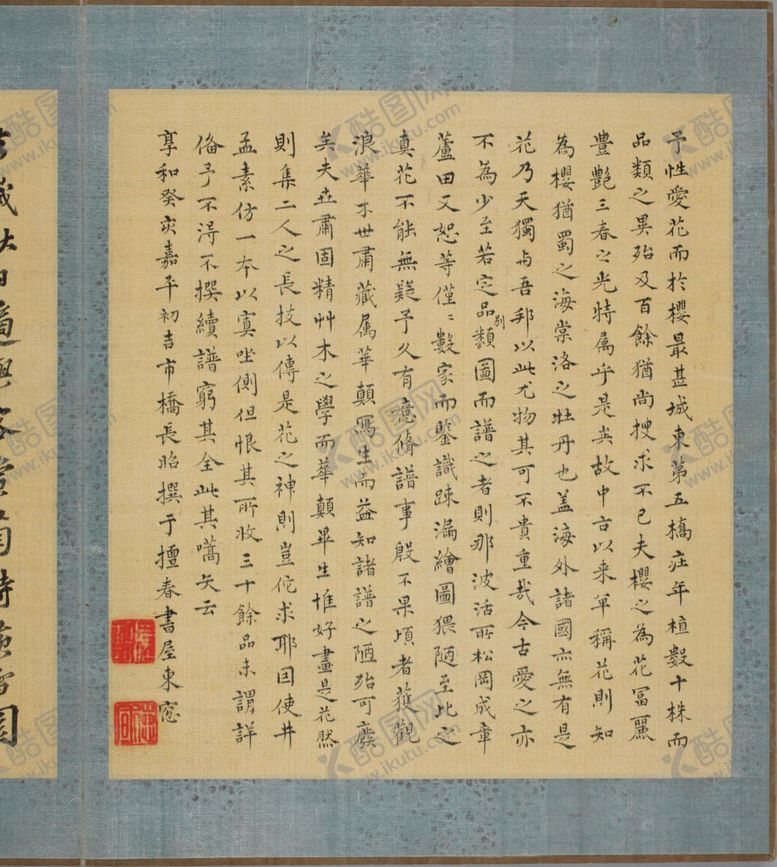 予性愛花而於櫻最甚城東第五橋莊年植數十株而
品類之異殆及百餘猶尚搜求不已夫櫻之為花冨麗
豊艷三春之光特属乎是矣故中古以来單稱花則知
為櫻猶蜀之海棠洛之牡丹也盖海外諸國亦無有是
花乃天獨与吾邦以此尤物其可不貴重哉今古愛之亦
不為少至若定品別類圖而譜之者則那波活所松岡成章
蘆田又恕等僅〻數家而鑒識踈漏繪圖猥陋至此之
真花不能無疑予久有意脩譜事殷不果頃者獲觀
浪華木世肅藏属華顛冩生而益知諸譜之陋殆可廢
矣夫世肅固精艸木之學而華顛畢生惟好畫是花然
則集二人之長技以傳是花之神則豈佗求耶因使井
孟素仿一本以寘坐側但恨其所收三十餘品未謂詳
俻予不淂不撰續譜窮其全此其嚆矢云
享和癸亥嘉平初吉市橋長昭撰于擅春書屋東窓
酷图网
www.ikutu.com